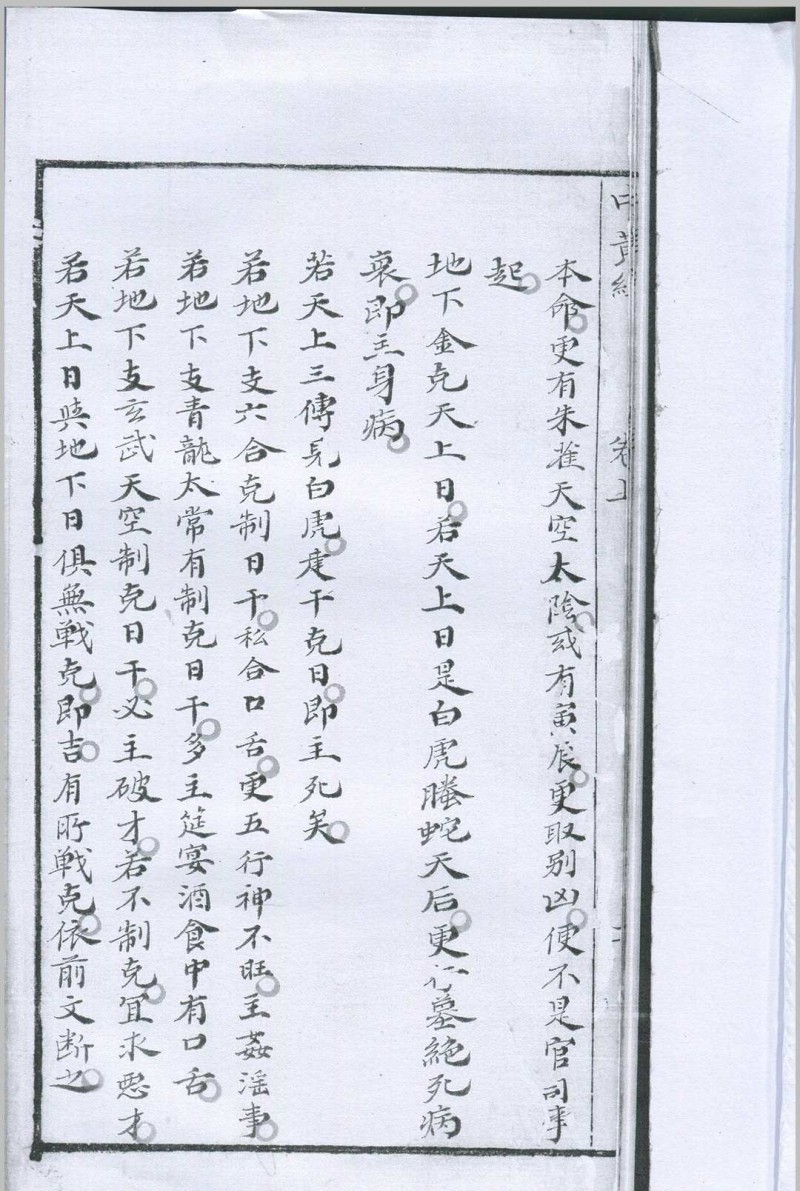 中黃經 卷上
本命更有朱雀天空太陰或有寅辰更取別凶便不是官司事
起
地下金克天上日若天上日是白虎螣蛇天后更行墓絕死病
衰即主身病
若天上三傳見白虎建干克日即主死矣
若地下支六合克制日干私合口舌更五行神不旺主姦滛事
若地下支青龍太常有制克日干多主筵宴酒食中有口舌
若地下支玄武天空制克日干必主破才若不制克宜求惡才
若天上日與地下日俱無戰克即吉有所戰克依前文断之